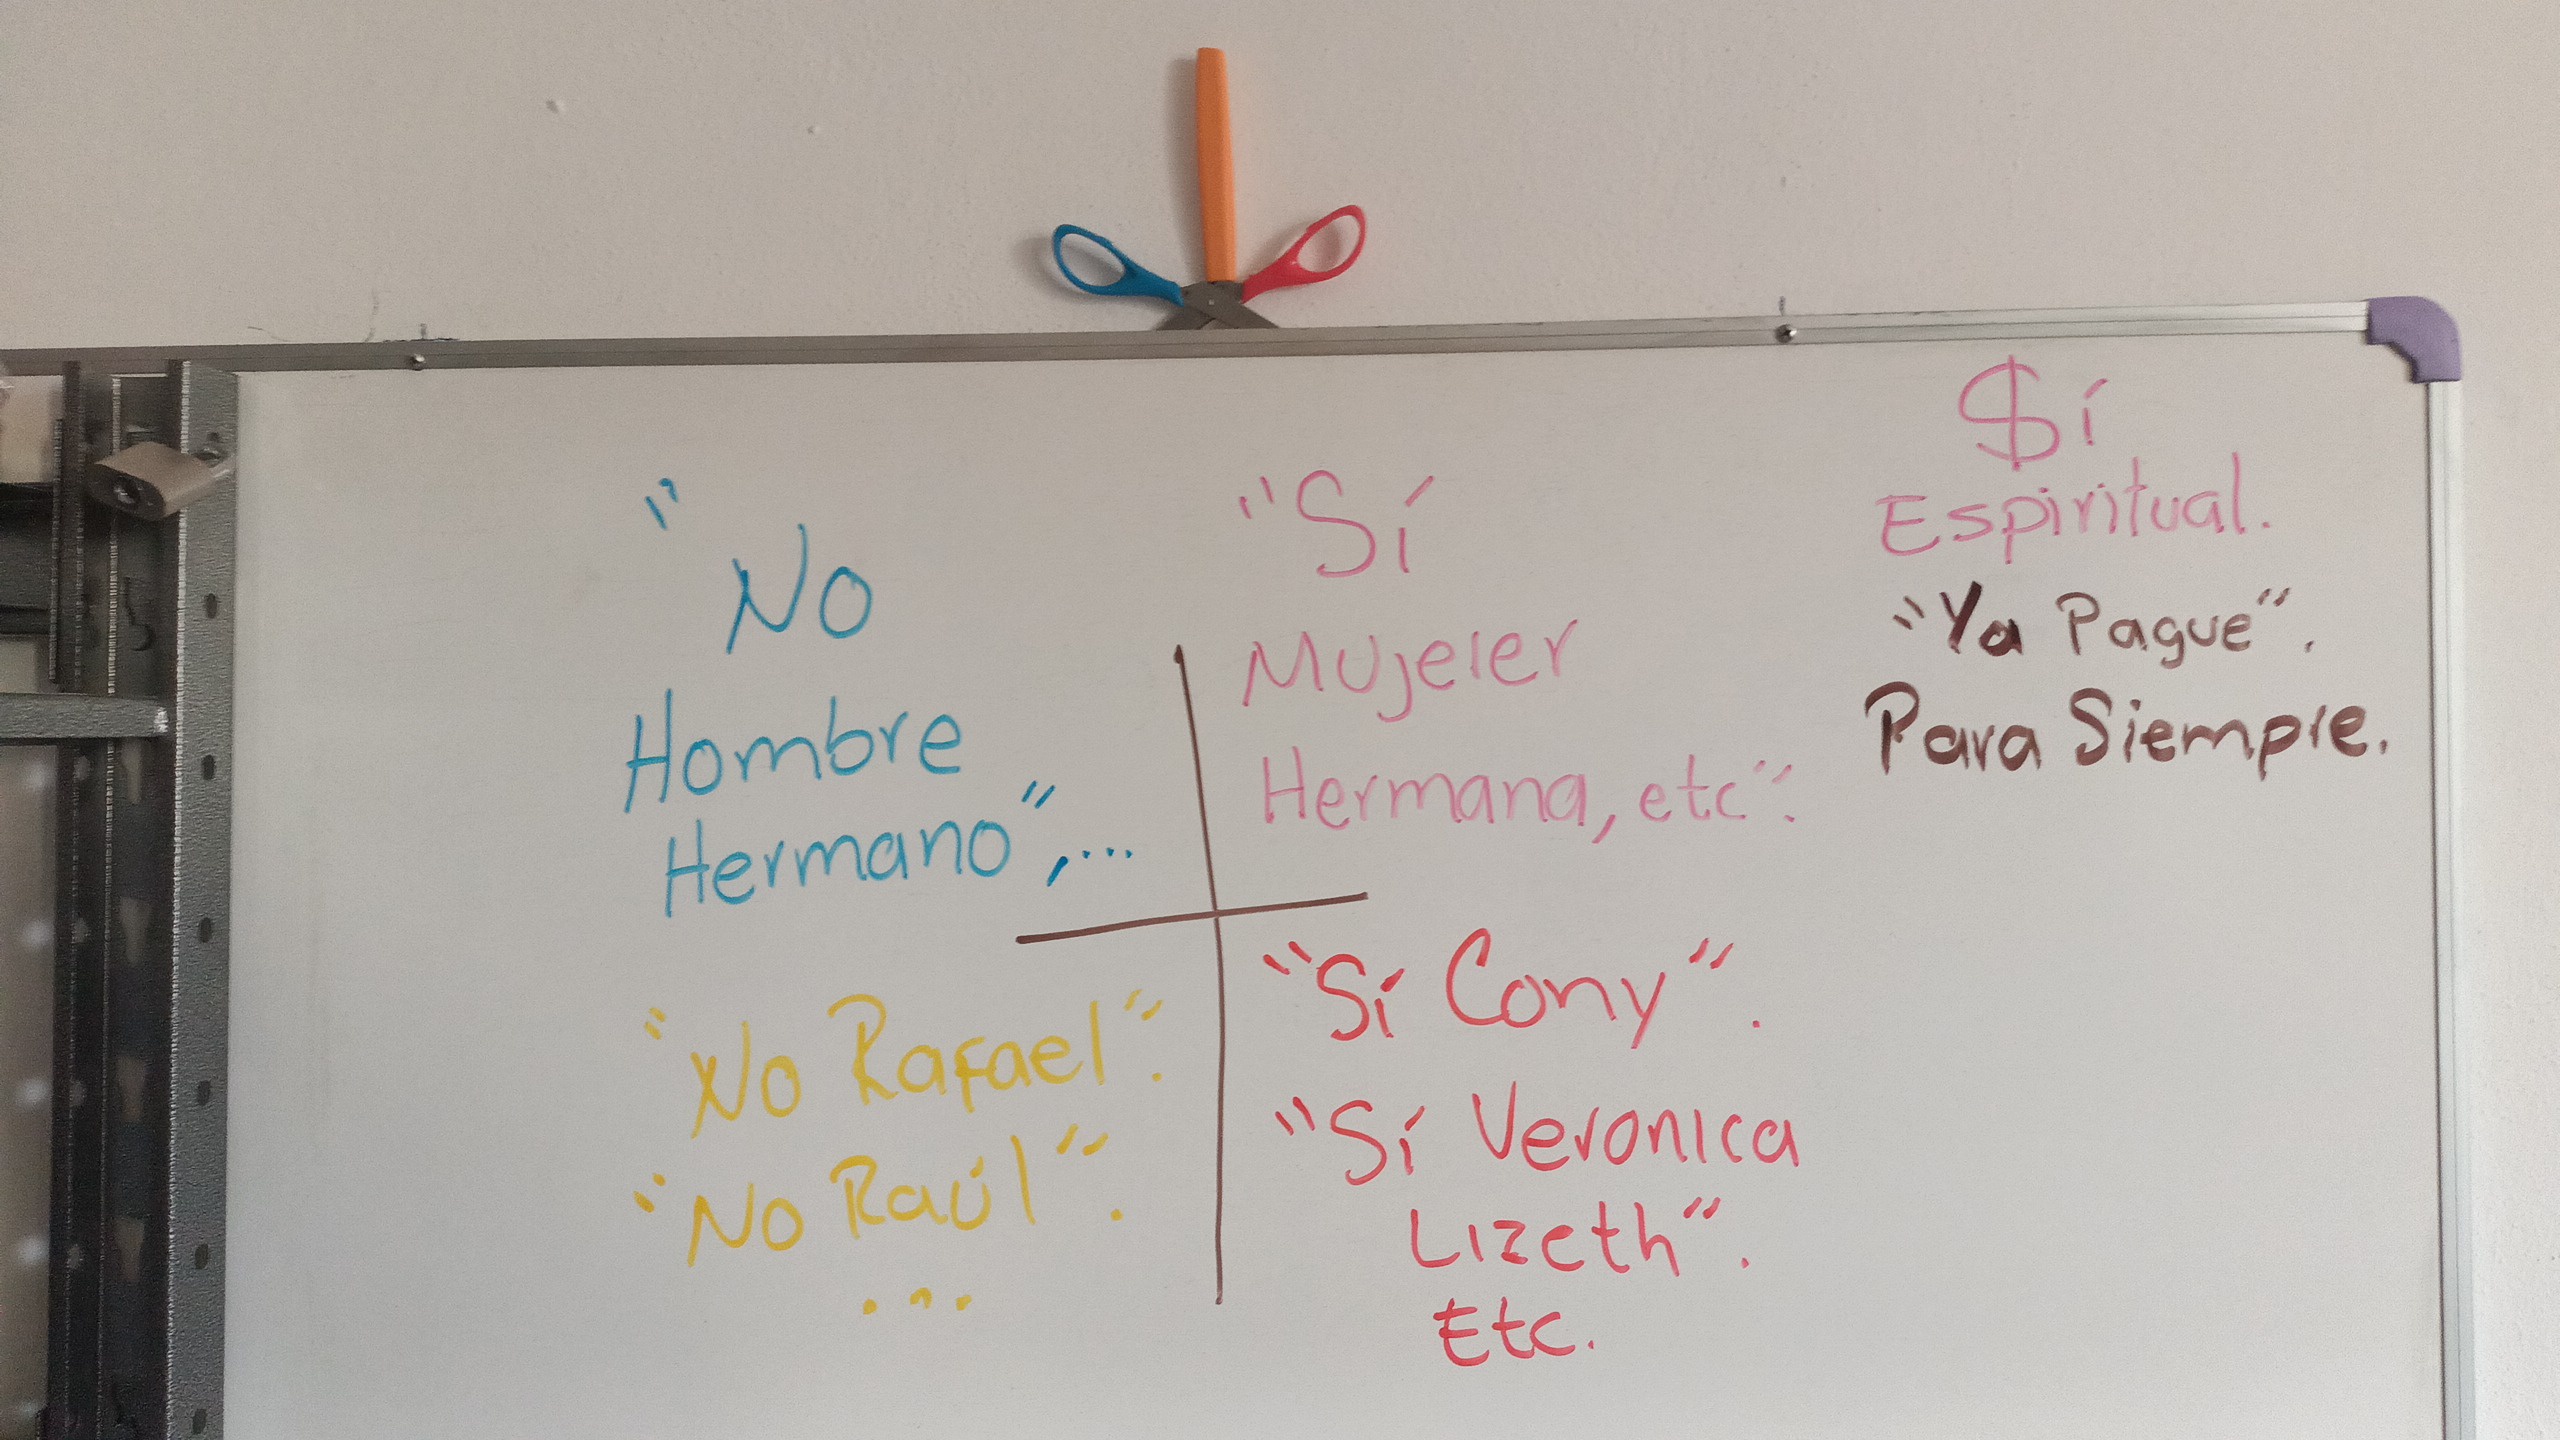 "No
Hombre
Hermano",...
"No Rafael".
"No Raúl".
...
"Sí
Mujeler
Hermana, etc".
"Sí Cony".
"Sí Veronica
Lizeth".
Etc.
$í
Espiritual.
"Ya Pague".
Para Siempre.